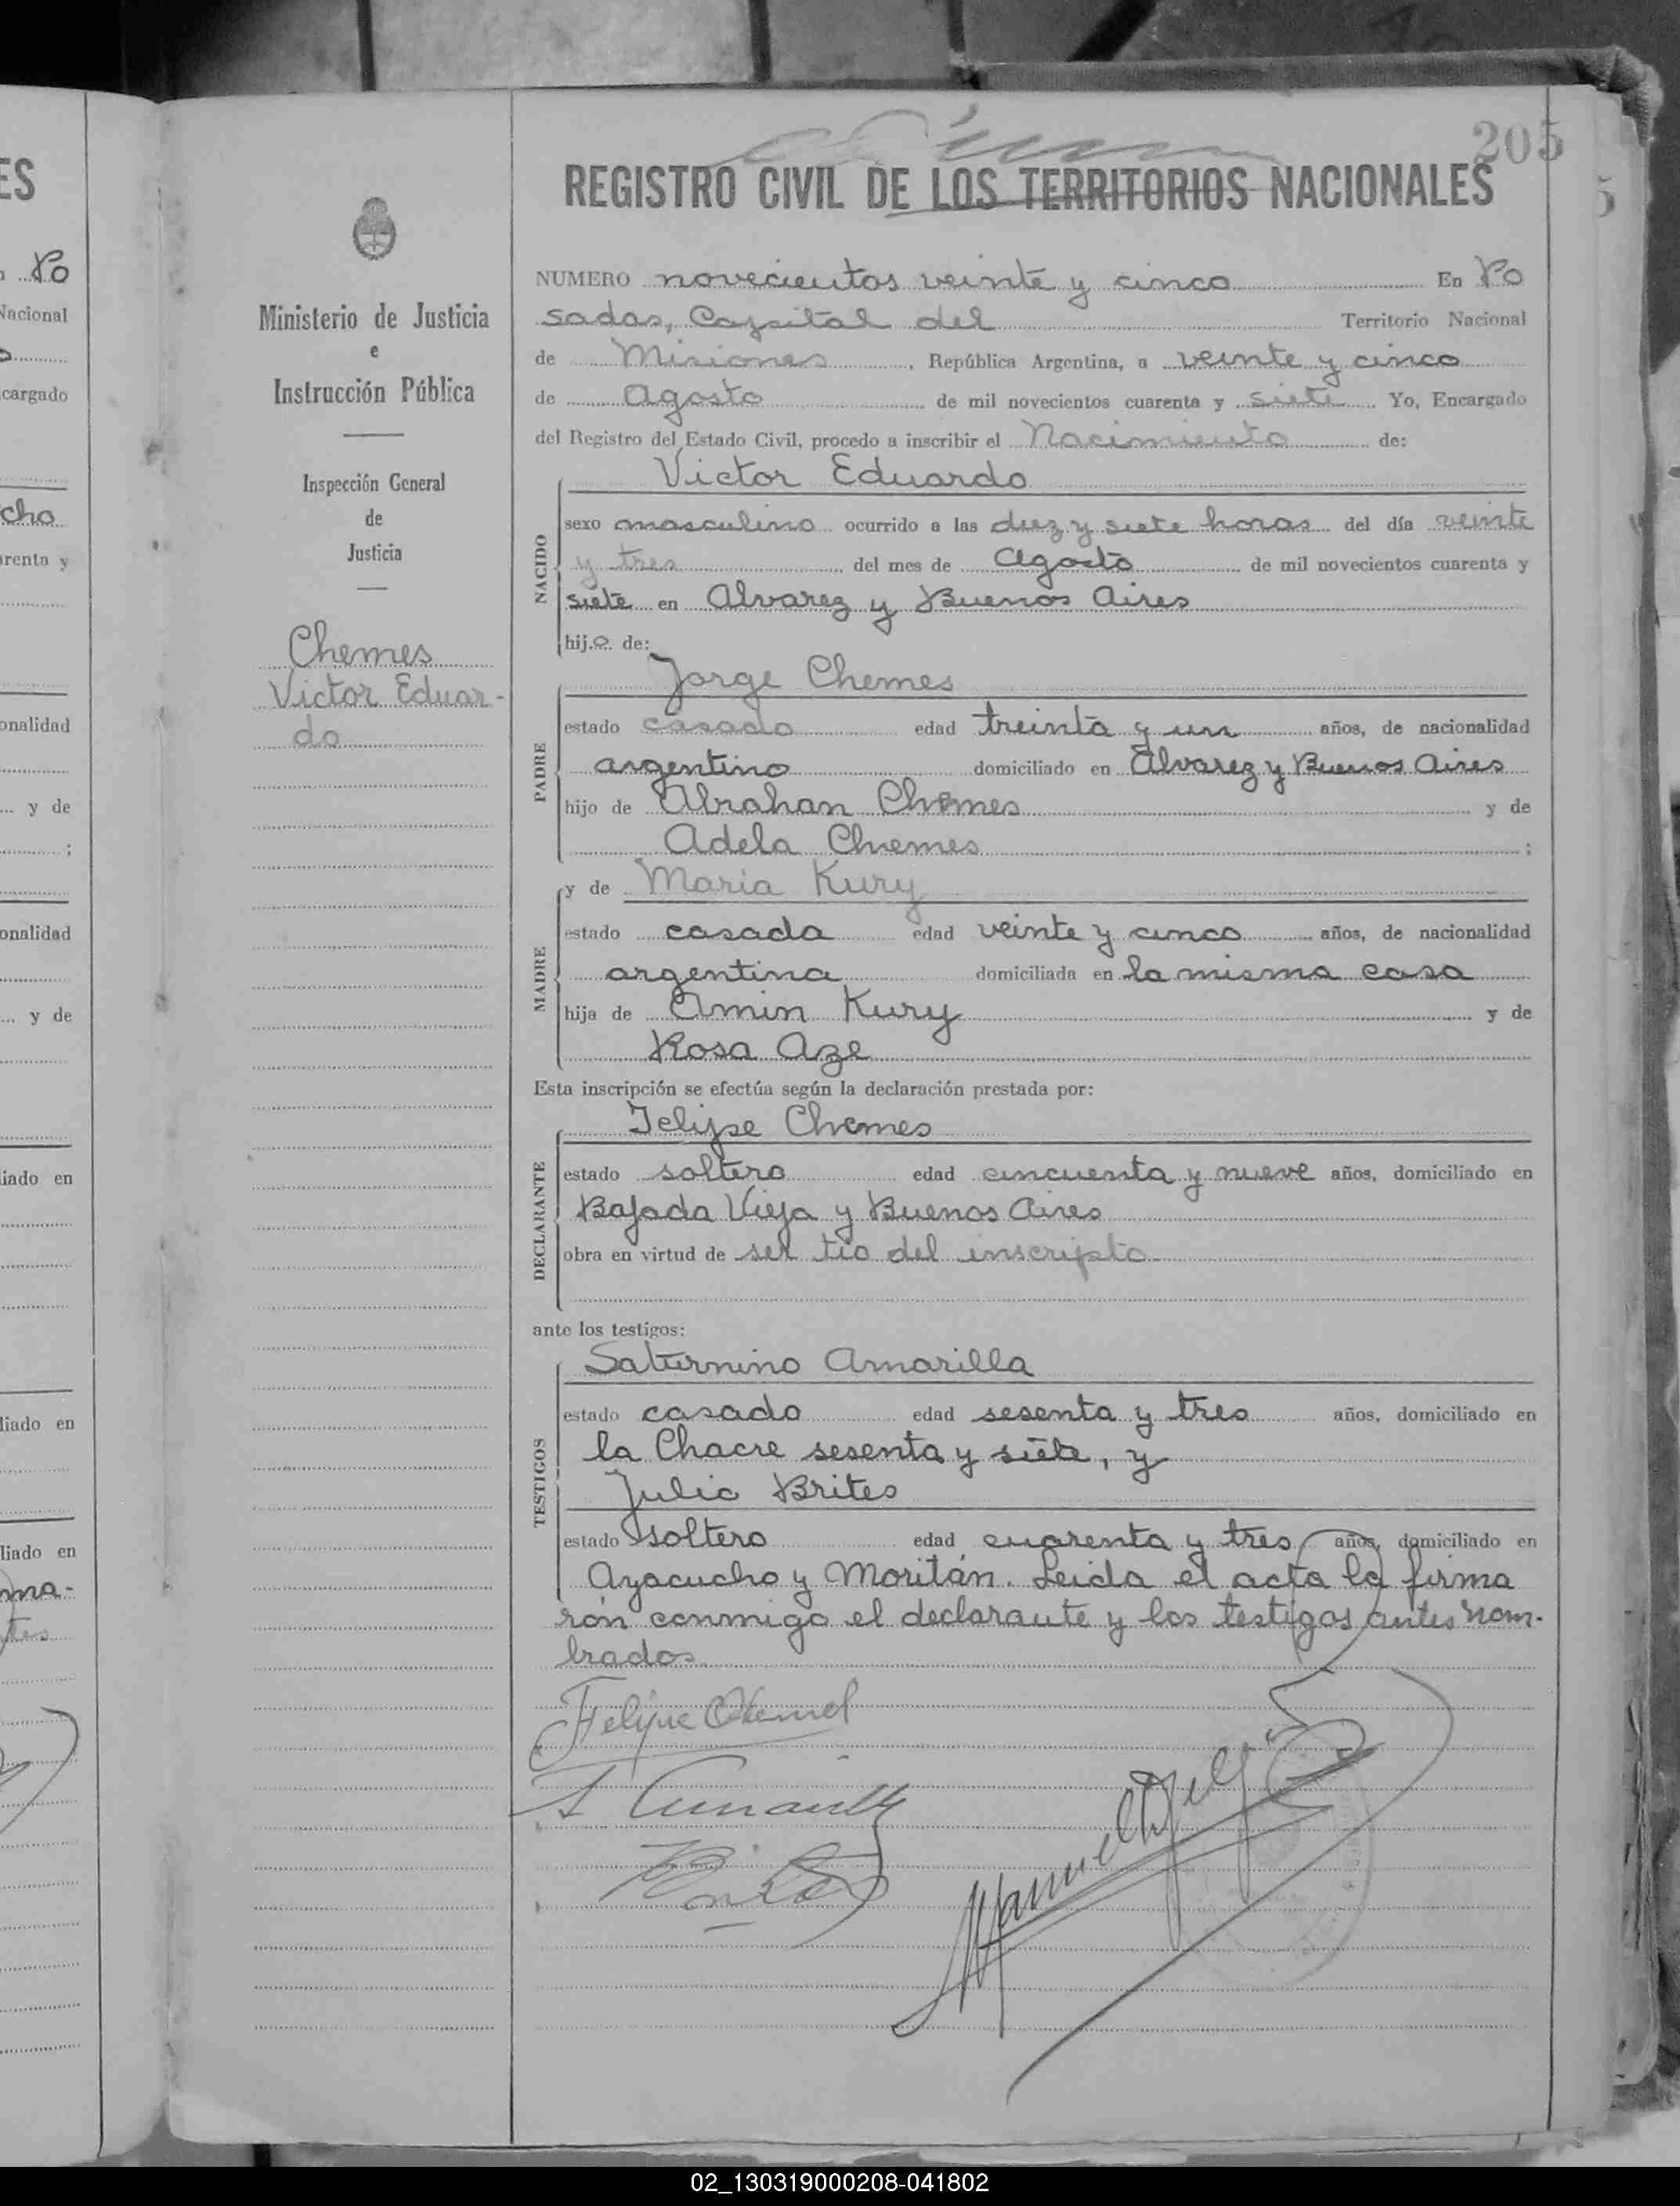 205
REGISTRO CIVIL DE LOS TERRITORIOS NACIONALES
Ministerio de Justicia
e
Instrucción Pública
Inspección General
de
Justicia
Chemes
Victor Eduar-
do
NUMERO novecientos veinte y cinco En Po
sadas, Capital del Territorio Nacional
de Misiones, República Argentina, a veinte y cinco
de Agosto de mil novecientos cuarenta y siete Yo, Encargado
del Registro del Estado Civil, procedo a inscribir el Nacimiento de:
NACIDO
Victor Eduardo
sexo masculino ocurrido a las diez y siete horas del día veinte
y tres del mes de Agosto de mil novecientos cuarenta y
siete en Alvarez y Buenos Aires
hijo de:
PADRE
Jorge Chemes
estado casado edad treinta y un años, de nacionalidad
argentino domiciliado en Alvarez y Buenos Aires
hijo de Abrahan Chemes y de
Adela Chemes ;
MADRE
y de Maria Kury
estado casada edad veinte y cinco años, de nacionalidad
argentina domiciliada en la misma casa
hija de Amin Kury y de
Rosa Aze
Esta inscripción se efectúa según la declaración prestada por:
DECLARANTE
Felipe Chemes
estado soltero edad cincuenta y nueve años, domiciliado en
Bajada Vieja y Buenos Aires
obra en virtud de ser tio del inscripto
ante los testigos:
TESTIGOS
Saturnino Amarilla
estado casado edad sesenta y tres años, domiciliado en
la Chacre sesenta y siete, y
Julio Brites
estado soltero edad cuarenta y tres años, domiciliado en
Ayacucho y Moritán. Leida el acta la firma
rón conmigo el declarante y los testigos antes nom-
brados
Felipe Chemes
02_130319000208-041802